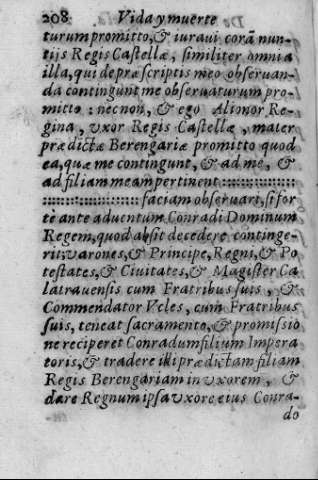 208. Vida y muerte
turum promitto, & iuravi corā nun-
tijs Regis Castellæ, similiter omnia
illa, qui de præscriptis meo observan-
da contingunt me observaturum pro-
mitto : necnon, & ego Alinor Re-
gina, vxor Regis Castellæ, mater
prædictæ Berengariæ promitto quod
ea, quæ me contingunt, & ad me, &
ad filiam meam pertinent ::::::::::::::
:::::::::::::: faciam observari, si for
te ante adventum Conradi Dominum
Regem, quod absit decedere continge-
rit: varones, & Principe, Regni, & Po
testates, & Civitates, & Magister Ca
latravensis cum Fratribus suis, &
Commendator Vcles, cum Fratribus
suis, teneat sacramento, & promissio
ne reciperet Conradum filium Impera
toris, & tradere illi prædictam filiam
Regis Berengariam in vxorem, &
dare Regnum ipsa vxore eius Conra-
do